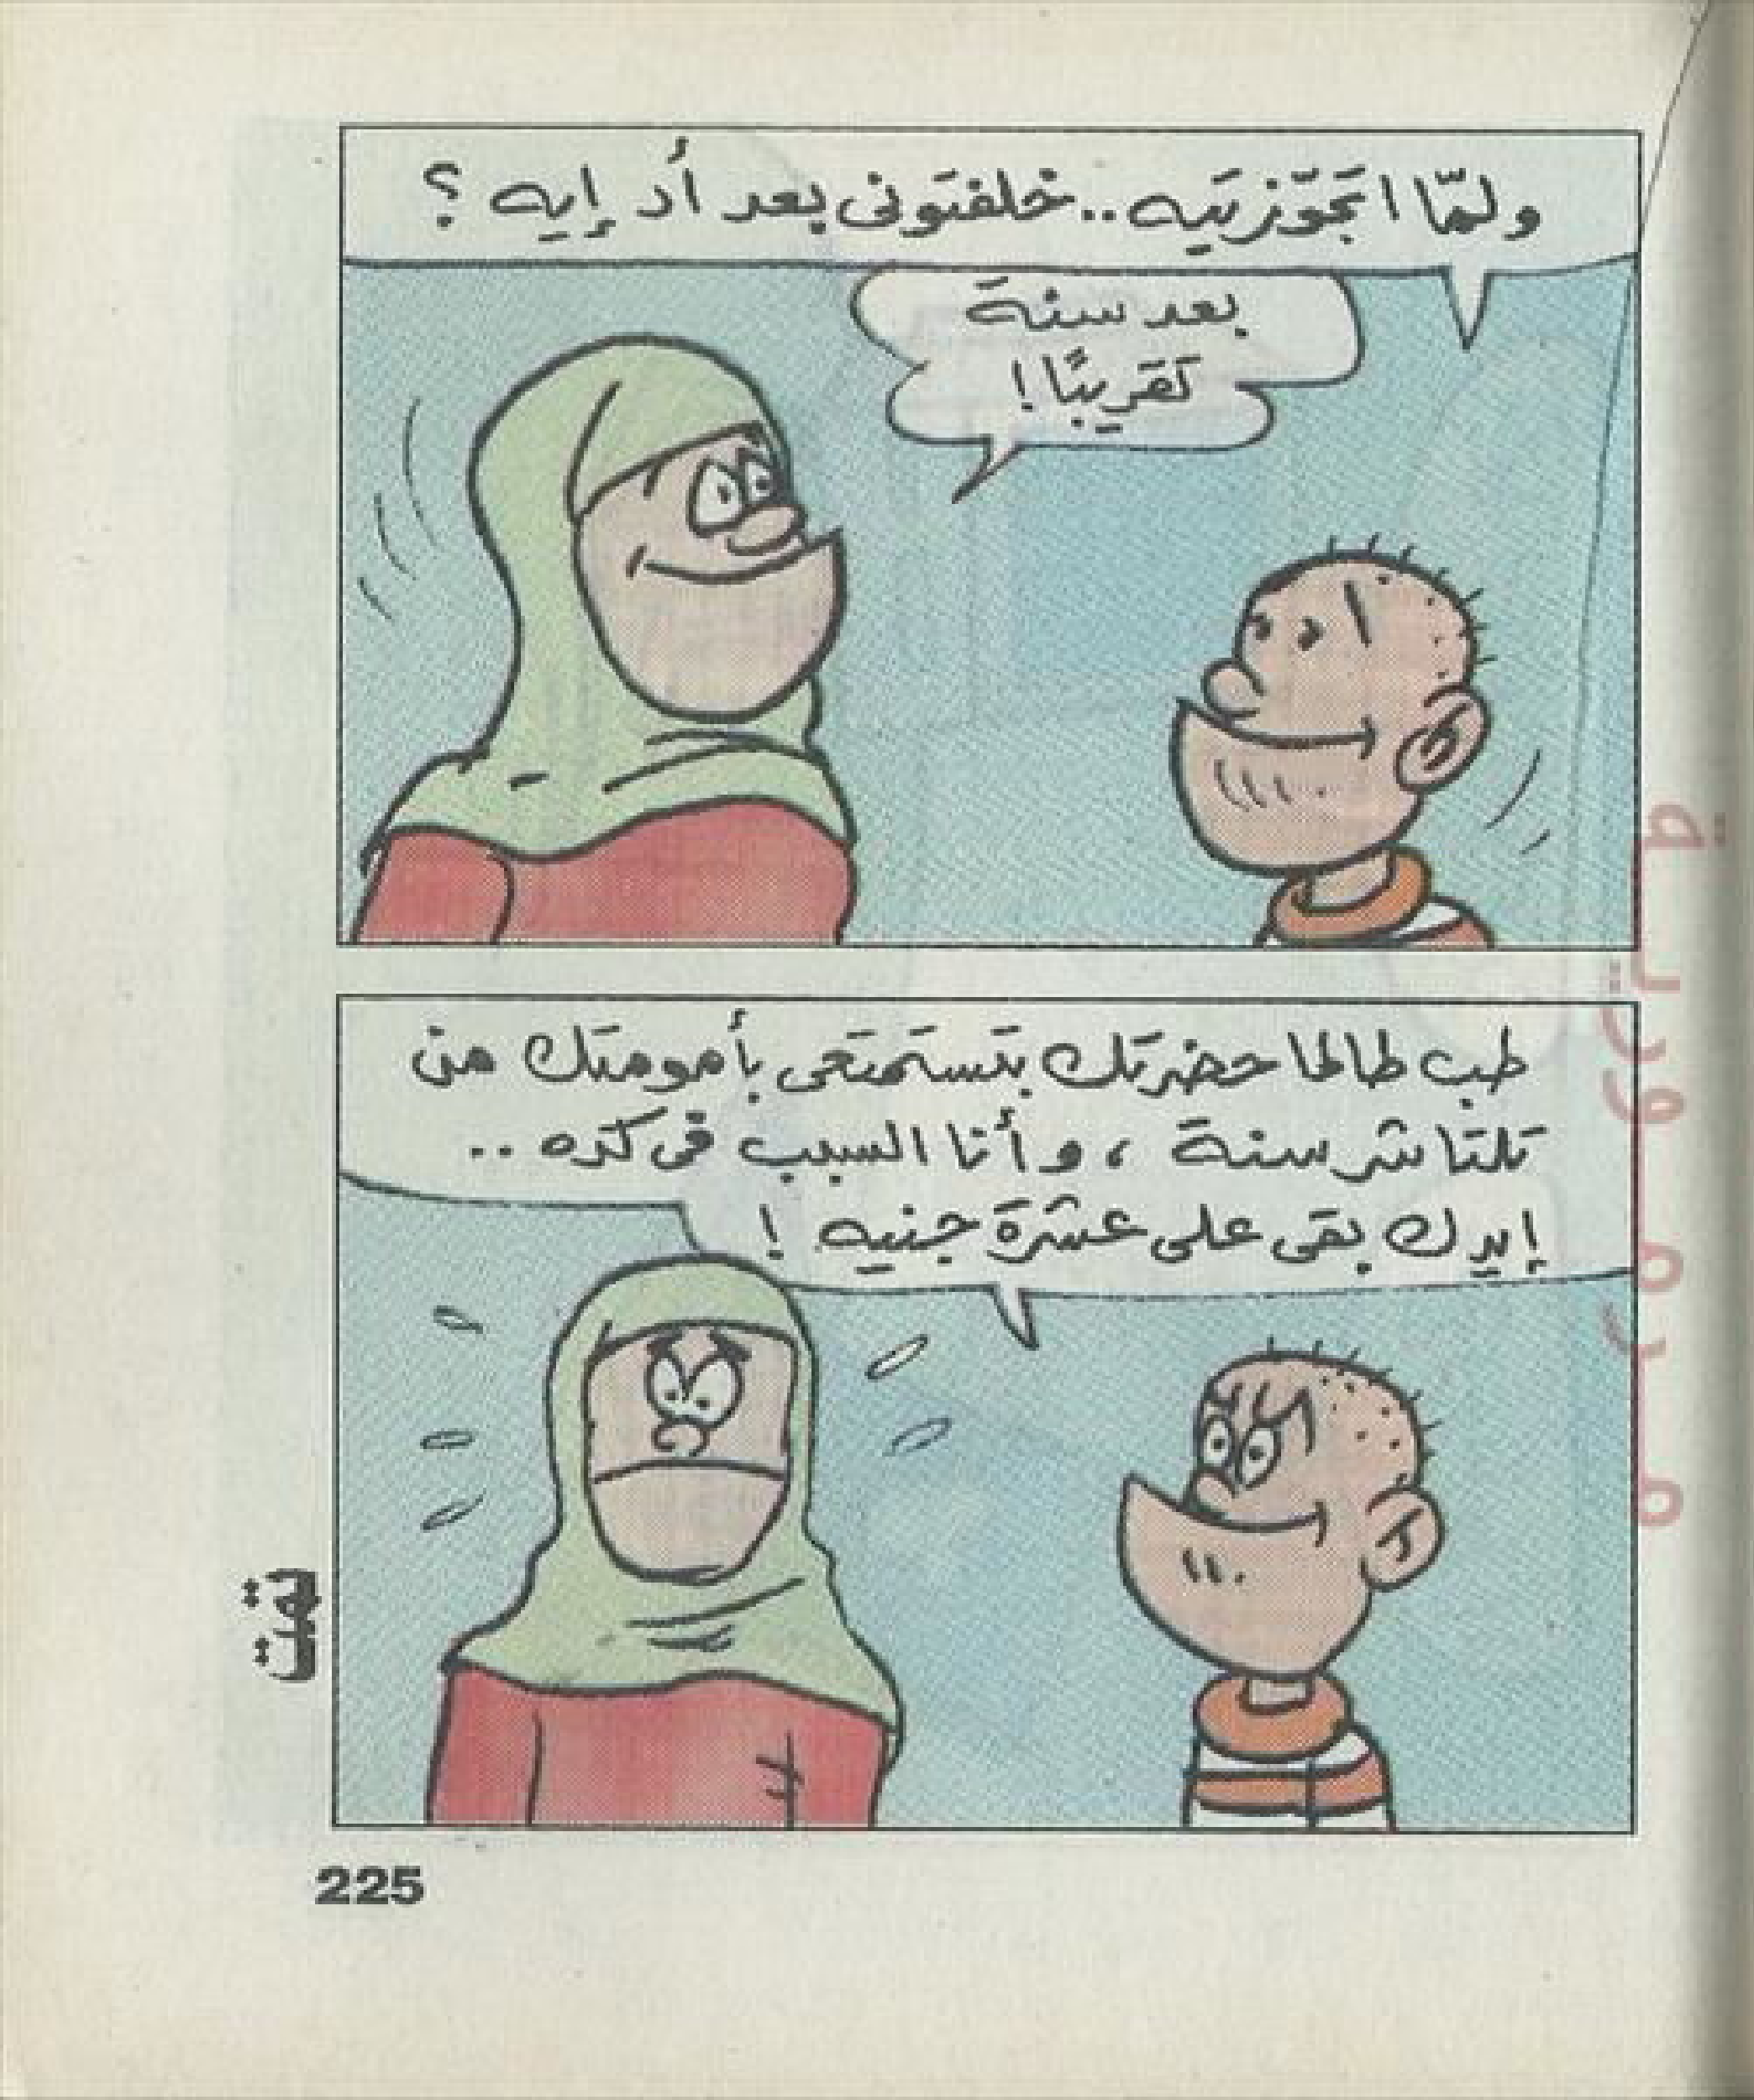 ولمّا اتجوّزتيه.. خلفتونى بعد أد إيه ؟
بعد سنة
تقريبًا !
طب طالما حضرتك بتستمتعى بأمومتك من
تلتاشر سنة ، وأنا السبب فى كده ..
إيدك بقى على عشرة جنيه !
تمت
225